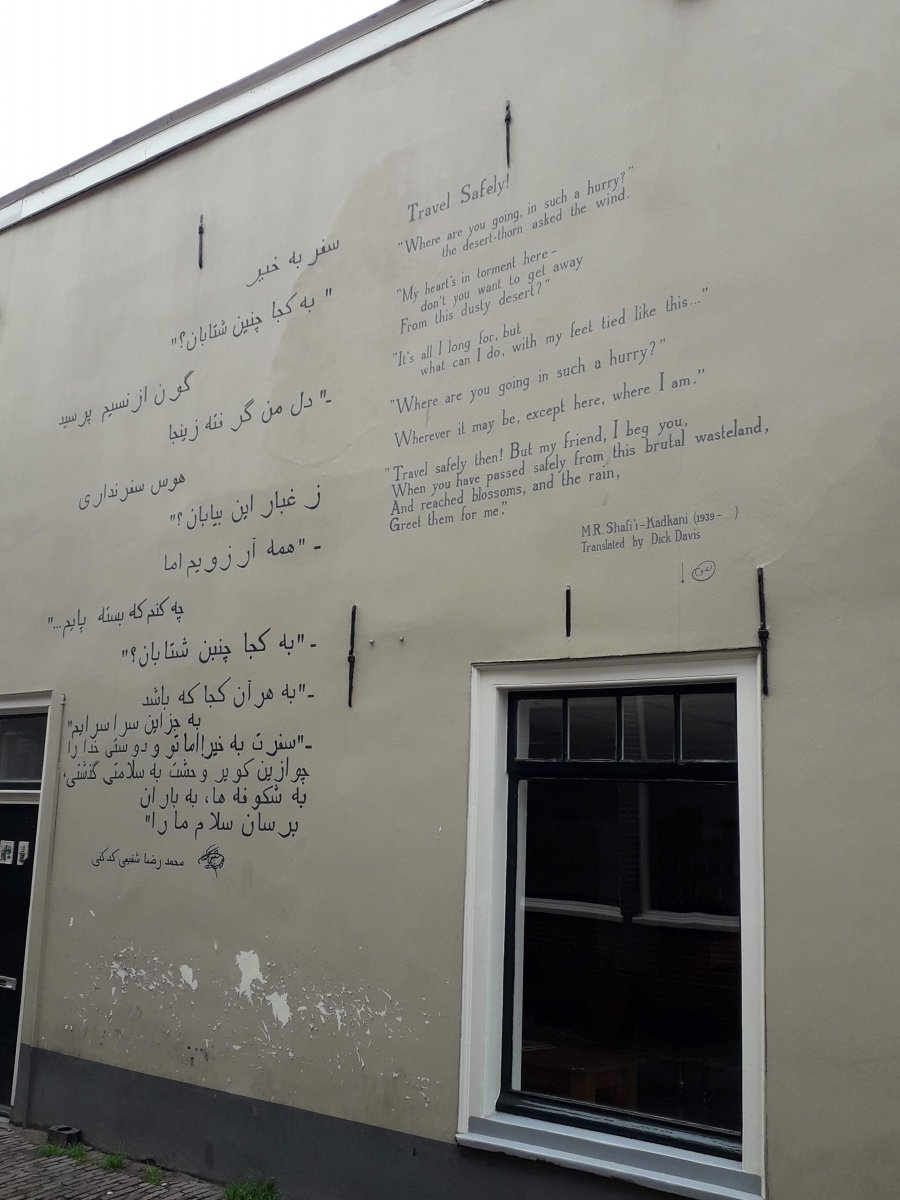 سفر به خیر
" به کجا چنین شتابان؟"
گون از نسیم پرسید
-" دل من گرفته زینجا
هوس سفر نداری
ز غبار این بیابان؟"
- "همه آرزویم اما
چه کنم که بسته پایم..."
- "به کجا چنین شتابان؟"
-"به هر آن کجا که باشد
به جز این سرا سرایم"
-"سفرت به خیر!اما تو و دوستی خدا را
چو ازین کویر وحشت به سلامتی گذشتی،
به شکوفه ها، به باران
برسان سلام ما را"
محمد رضا شفیعی کدکنی
Travel Safely!
"Where are you going, in such a hurry?"
the desert-thorn asked the wind.
"My heart's in torment here-
don't you want to get away
From this dusty desert?"
"It's all I long for, but
what can I do, with my feet tied like this..."
"Where are you going in such a hurry?"
Wherever it may be, except here, where I am."
"Travel safely then! But my friend, I beg you,
When you have passed safely from this brutal wasteland,
And reached blossoms, and the rain,
Greet them for me."
M.R. Shafi'i-Kadkani (1939- )
Translated by Dick Davis